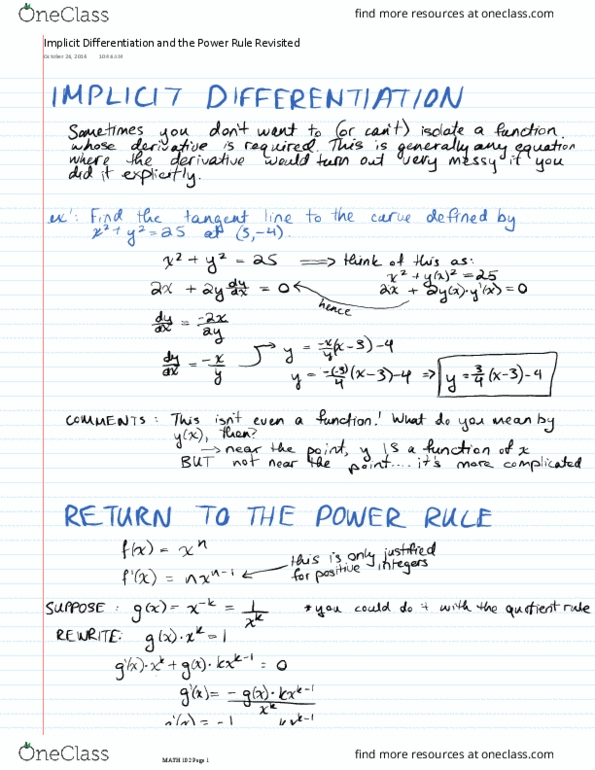 OneClass
find more resources at oneclass.com
Implicit Differentiation and the Power Rule Revisited
October 26, 2016
IMPLICIT DIFFERENTIATION
Sometimes you don't want to (or can't) isolate a function
whose derivative is required. This is generally any equation
where the derivative would turn out very messy if you
did it explicitly.
ex': Find the tangent line to the curve defined by
x² + y² = 25 at (3,-4).
x² + y² = 25 ⟹ think of this as:
x² + y(x)² = 25
2x + 2y dy/dx = 0
2x + 2y(x)·y'(x) = 0
hence
dy/dx = -2x/2y
dy/dx = -x/y
y = -x/y(x-3)-4
y = -(-3)/4(x-3)-4 ⇒ y = 3/4(x-3)-4
COMMENTS: This isn't even a function! What do you mean by
y(x), then?
→ near the point, y IS a function of x
BUT not near the point.... it's more complicated
RETURN TO THE POWER RULE
f(x) = xⁿ
f'(x) = nxⁿ⁻¹
this is only justified
for positive integers
SUPPOSE: g(x) = x⁻ᵏ = 1/xᵏ *you could do it with the quotient rule
REWRITE: g(x)·xᵏ = 1
g'(x)·xᵏ + g(x)·kxᵏ⁻¹ = 0
g'(x) = -g(x)·kxᵏ⁻¹/xᵏ
g'(x) = -1 kxᵏ⁻¹
OneClass
MATH 102 Page 1
find more resources at oneclass.com